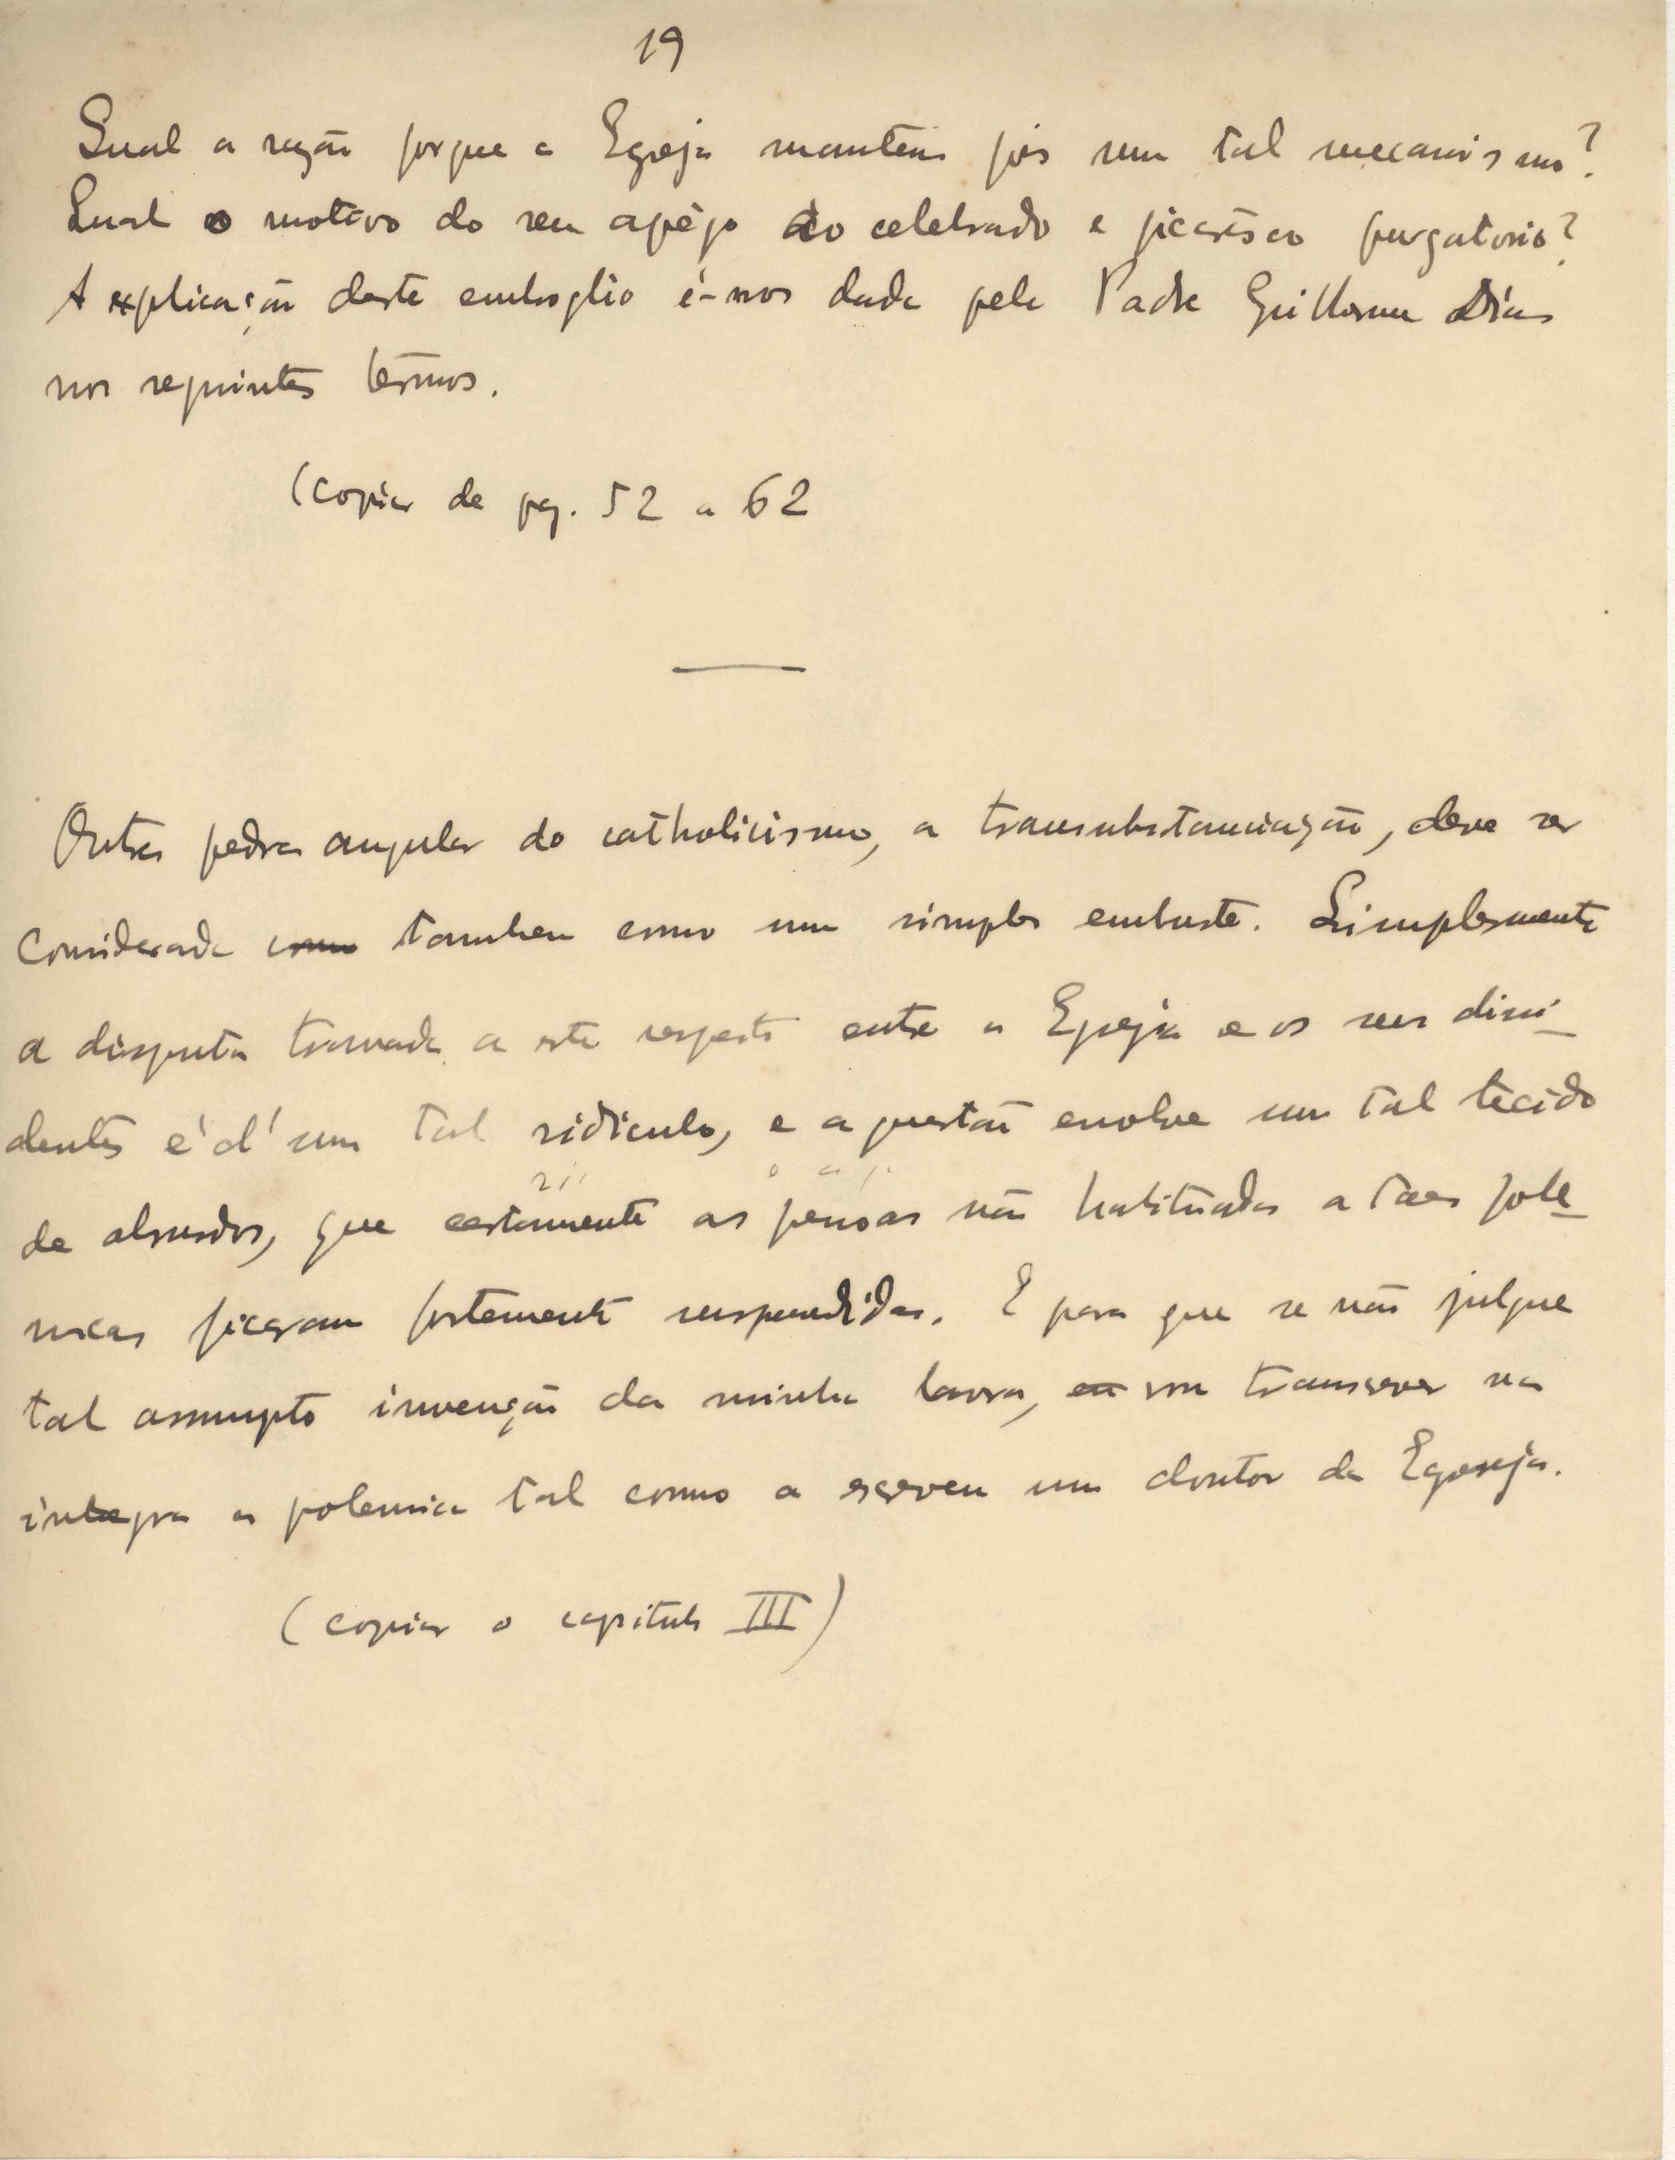 19
Qual a razão porque a Egreja mantem pois um tal mecanismo?
Qual o motivo do seu apêgo ao celebrado e picarêsco purgatorio?
A explicação deste embroglio é-nos dada pelo Padre Guilherme Dias
nos seguintes têrmos.
(copiar de pag. 52 a 62
Outra pedra angular do catholicismo, a transubstanciação, deve ser
considerada como tambem como um simples embuste. Simplesmente
a disputa travada a este respeito entre a Egreja e os seus dissi-
dentes é d'um tal ridiculo, e a questão envolve um tal tecido
de absurdos, que certamente as pessoas não habituadas a taes pole-
micas ficaram fortemente surpreendidas. E para que se não julgue
tal assumpto invenção da minha lavra, eu vou transcrever na
integra a polemica tal como a escreveu um doutor da Egreja.
(copiar o capitulo III)